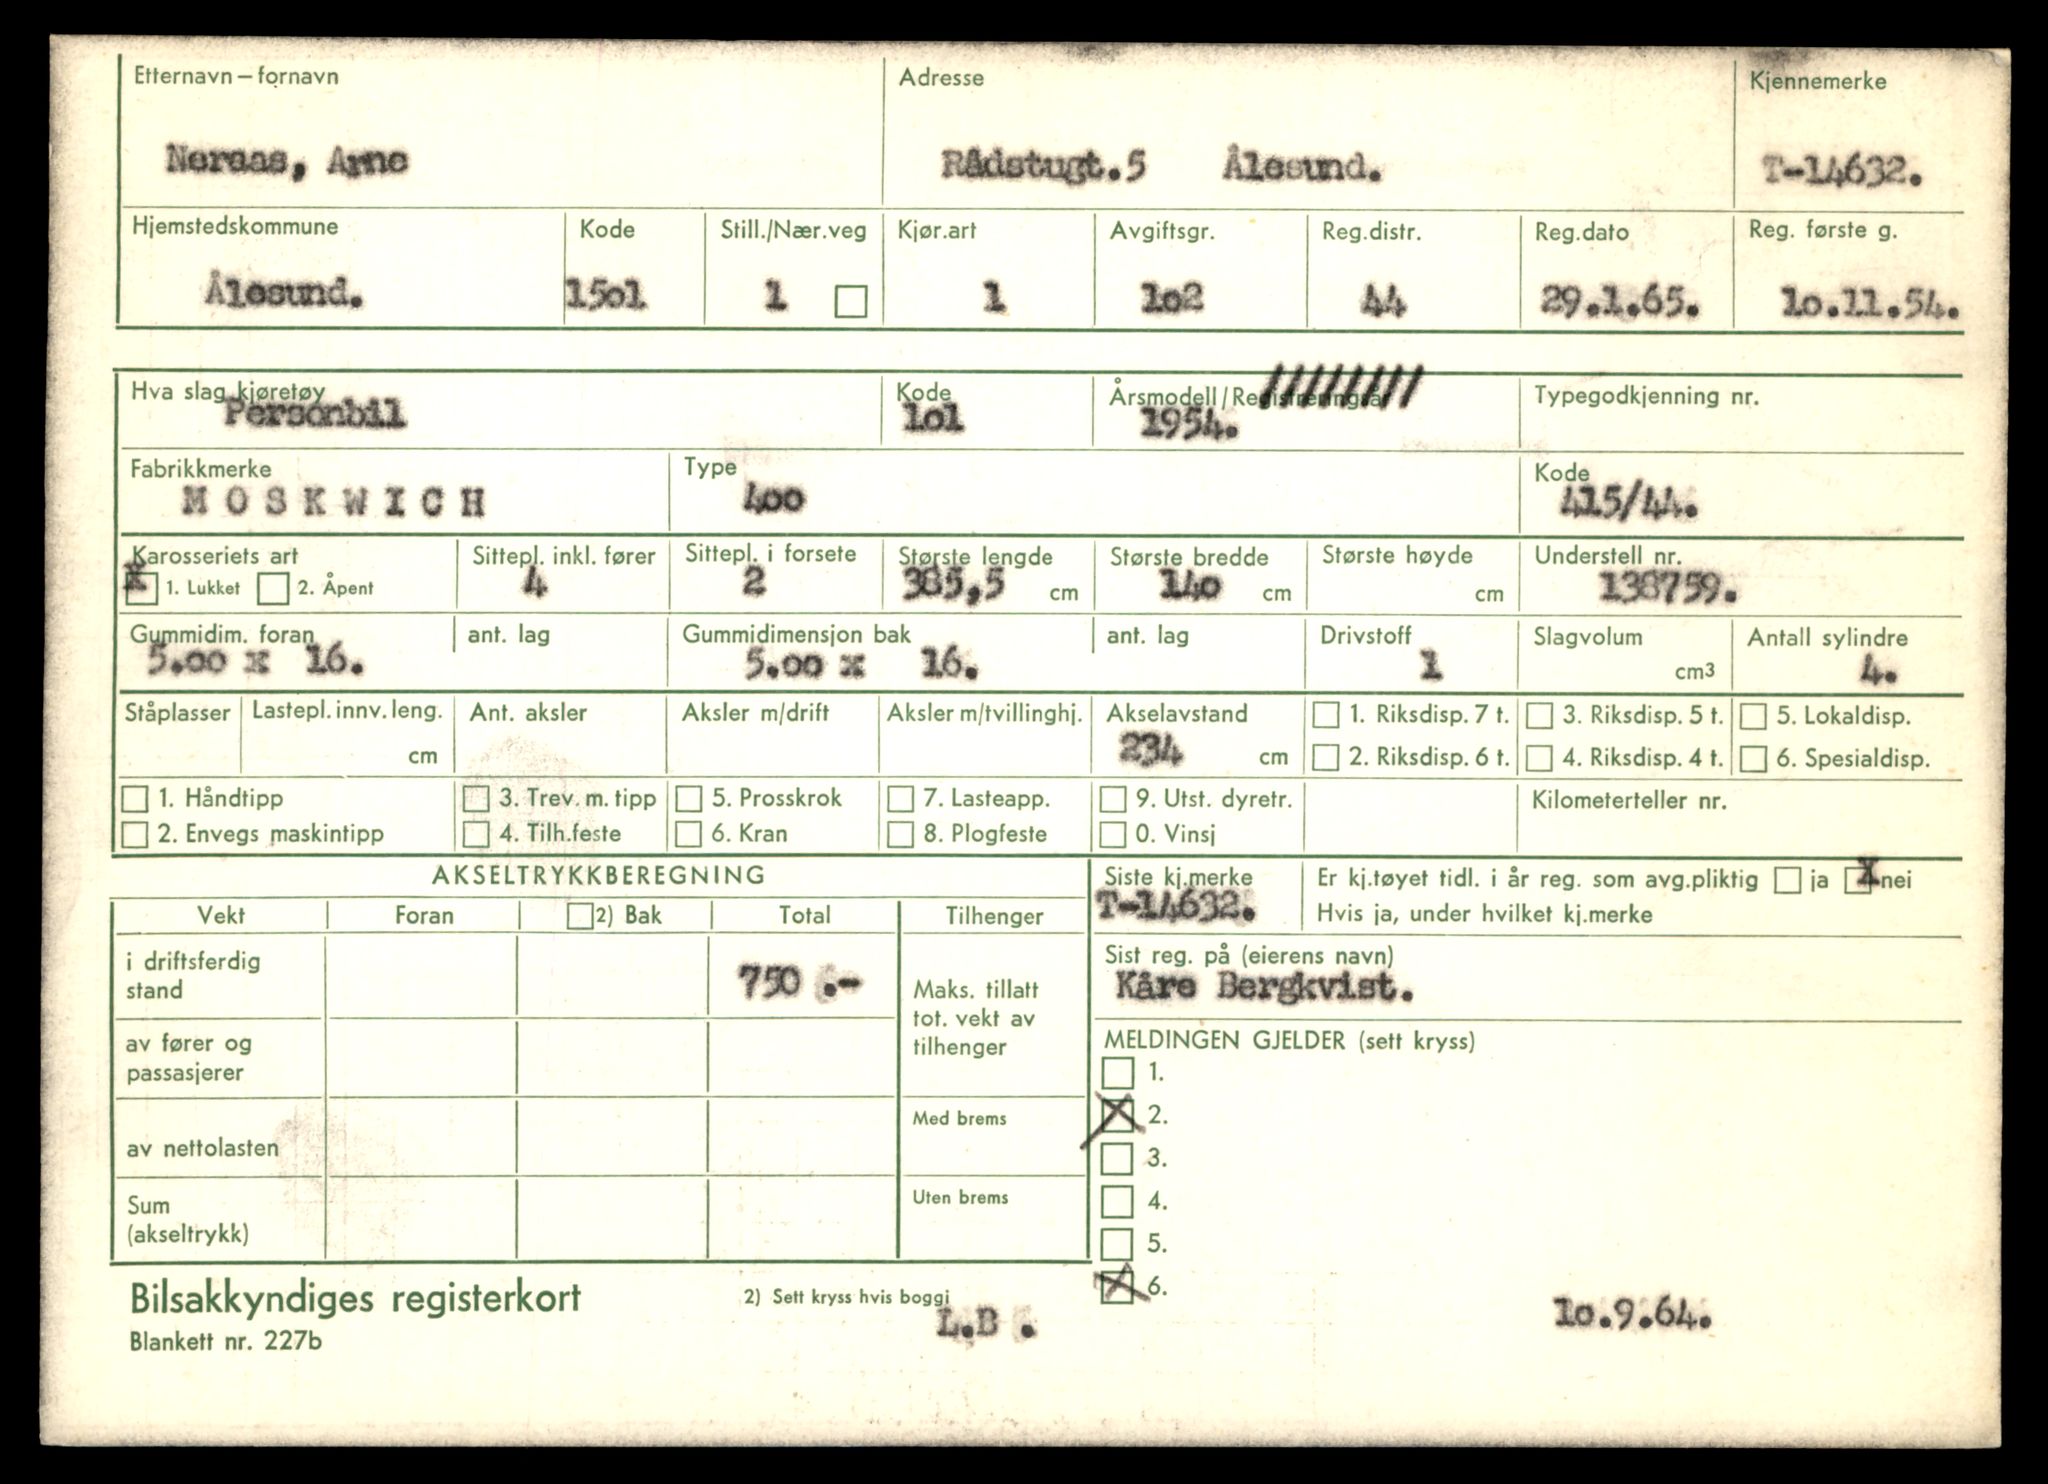 Etternavn – fornavn Adresse Kjennemerke
Neraas, Arne Rådstugt.5 Ålesund. T-14632.
Hjemstedskommune Kode Still./Nær.veg Kjør.art Avgiftsgr. Reg.distr. Reg.dato Reg. første g.
Ålesund. 15o1 1 1 1o2 44 29.1.65. 1o.11.54.
Hva slag kjøretøy Kode Årsmodell/Registreringsår Typegodkjenning nr.
Personbil 1o1 1954.
Fabrikkmerke Type Kode
M O S K W I C H 4oo 415/44.
Karosseriets art Sittepl. inkl. fører Sittepl. i forsete Største lengde Største bredde Største høyde Understell nr.
X 1. Lukket 2. Åpent 4 2 385,5 cm 14o cm cm 138759.
Gummidim. foran ant. lag Gummidimensjon bak ant. lag Drivstoff Slagvolum Antall sylindre
5.oo x 16. 5.oo x 16. 1 cm3 4.
Ståplasser Lastepl. innv. leng. Ant. aksler Aksler m/drift Aksler m/tvillinghj. Akselavstand 1. Riksdisp. 7 t. 3. Riksdisp. 5 t. 5. Lokaldisp.
cm 234 cm 2. Riksdisp. 6 t. 4. Riksdisp. 4 t. 6. Spesialdisp.
1. Håndtipp 3. Trev. m. tipp 5. Prosskrok 7. Lasteapp. 9. Utst. dyretr. Kilometerteller nr.
2. Envegs maskintipp 4. Tilh.feste 6. Kran 8. Plogfeste 0. Vinsj
AKSELTRYKKBEREGNING Siste kj.merke Er kj.tøyet tidl. i år reg. som avg.pliktig ja X nei
T-14632. Hvis ja, under hvilket kj.merke
Vekt Foran 2) Bak Total Tilhenger
Sist reg. på (eierens navn)
Kåre Bergkvist.
i driftsferdig
stand 750 .-
Maks. tillatt
tot. vekt av
tilhenger
av fører og
passasjerer
MELDINGEN GJELDER (sett kryss)
1.
X 2.
Med brems
av nettolasten
3.
4.
Uten brems
Sum
(akseltrykk)
5.
X 6.
Bilsakkyndiges registerkort 2) Sett kryss hvis boggi
L.B . 1o.9.64.
Blankett nr. 227b